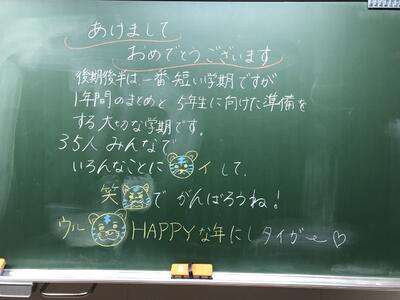 あけまして
おめでとうございます
後期後半は一番短い学期ですが
1年間のまとめと5年生に向けた準備を
する大切な学期です。
35人みんなで
いろんなことにイして、
笑でがんばろうね！
ウルHAPPYな年にしタイガー♡